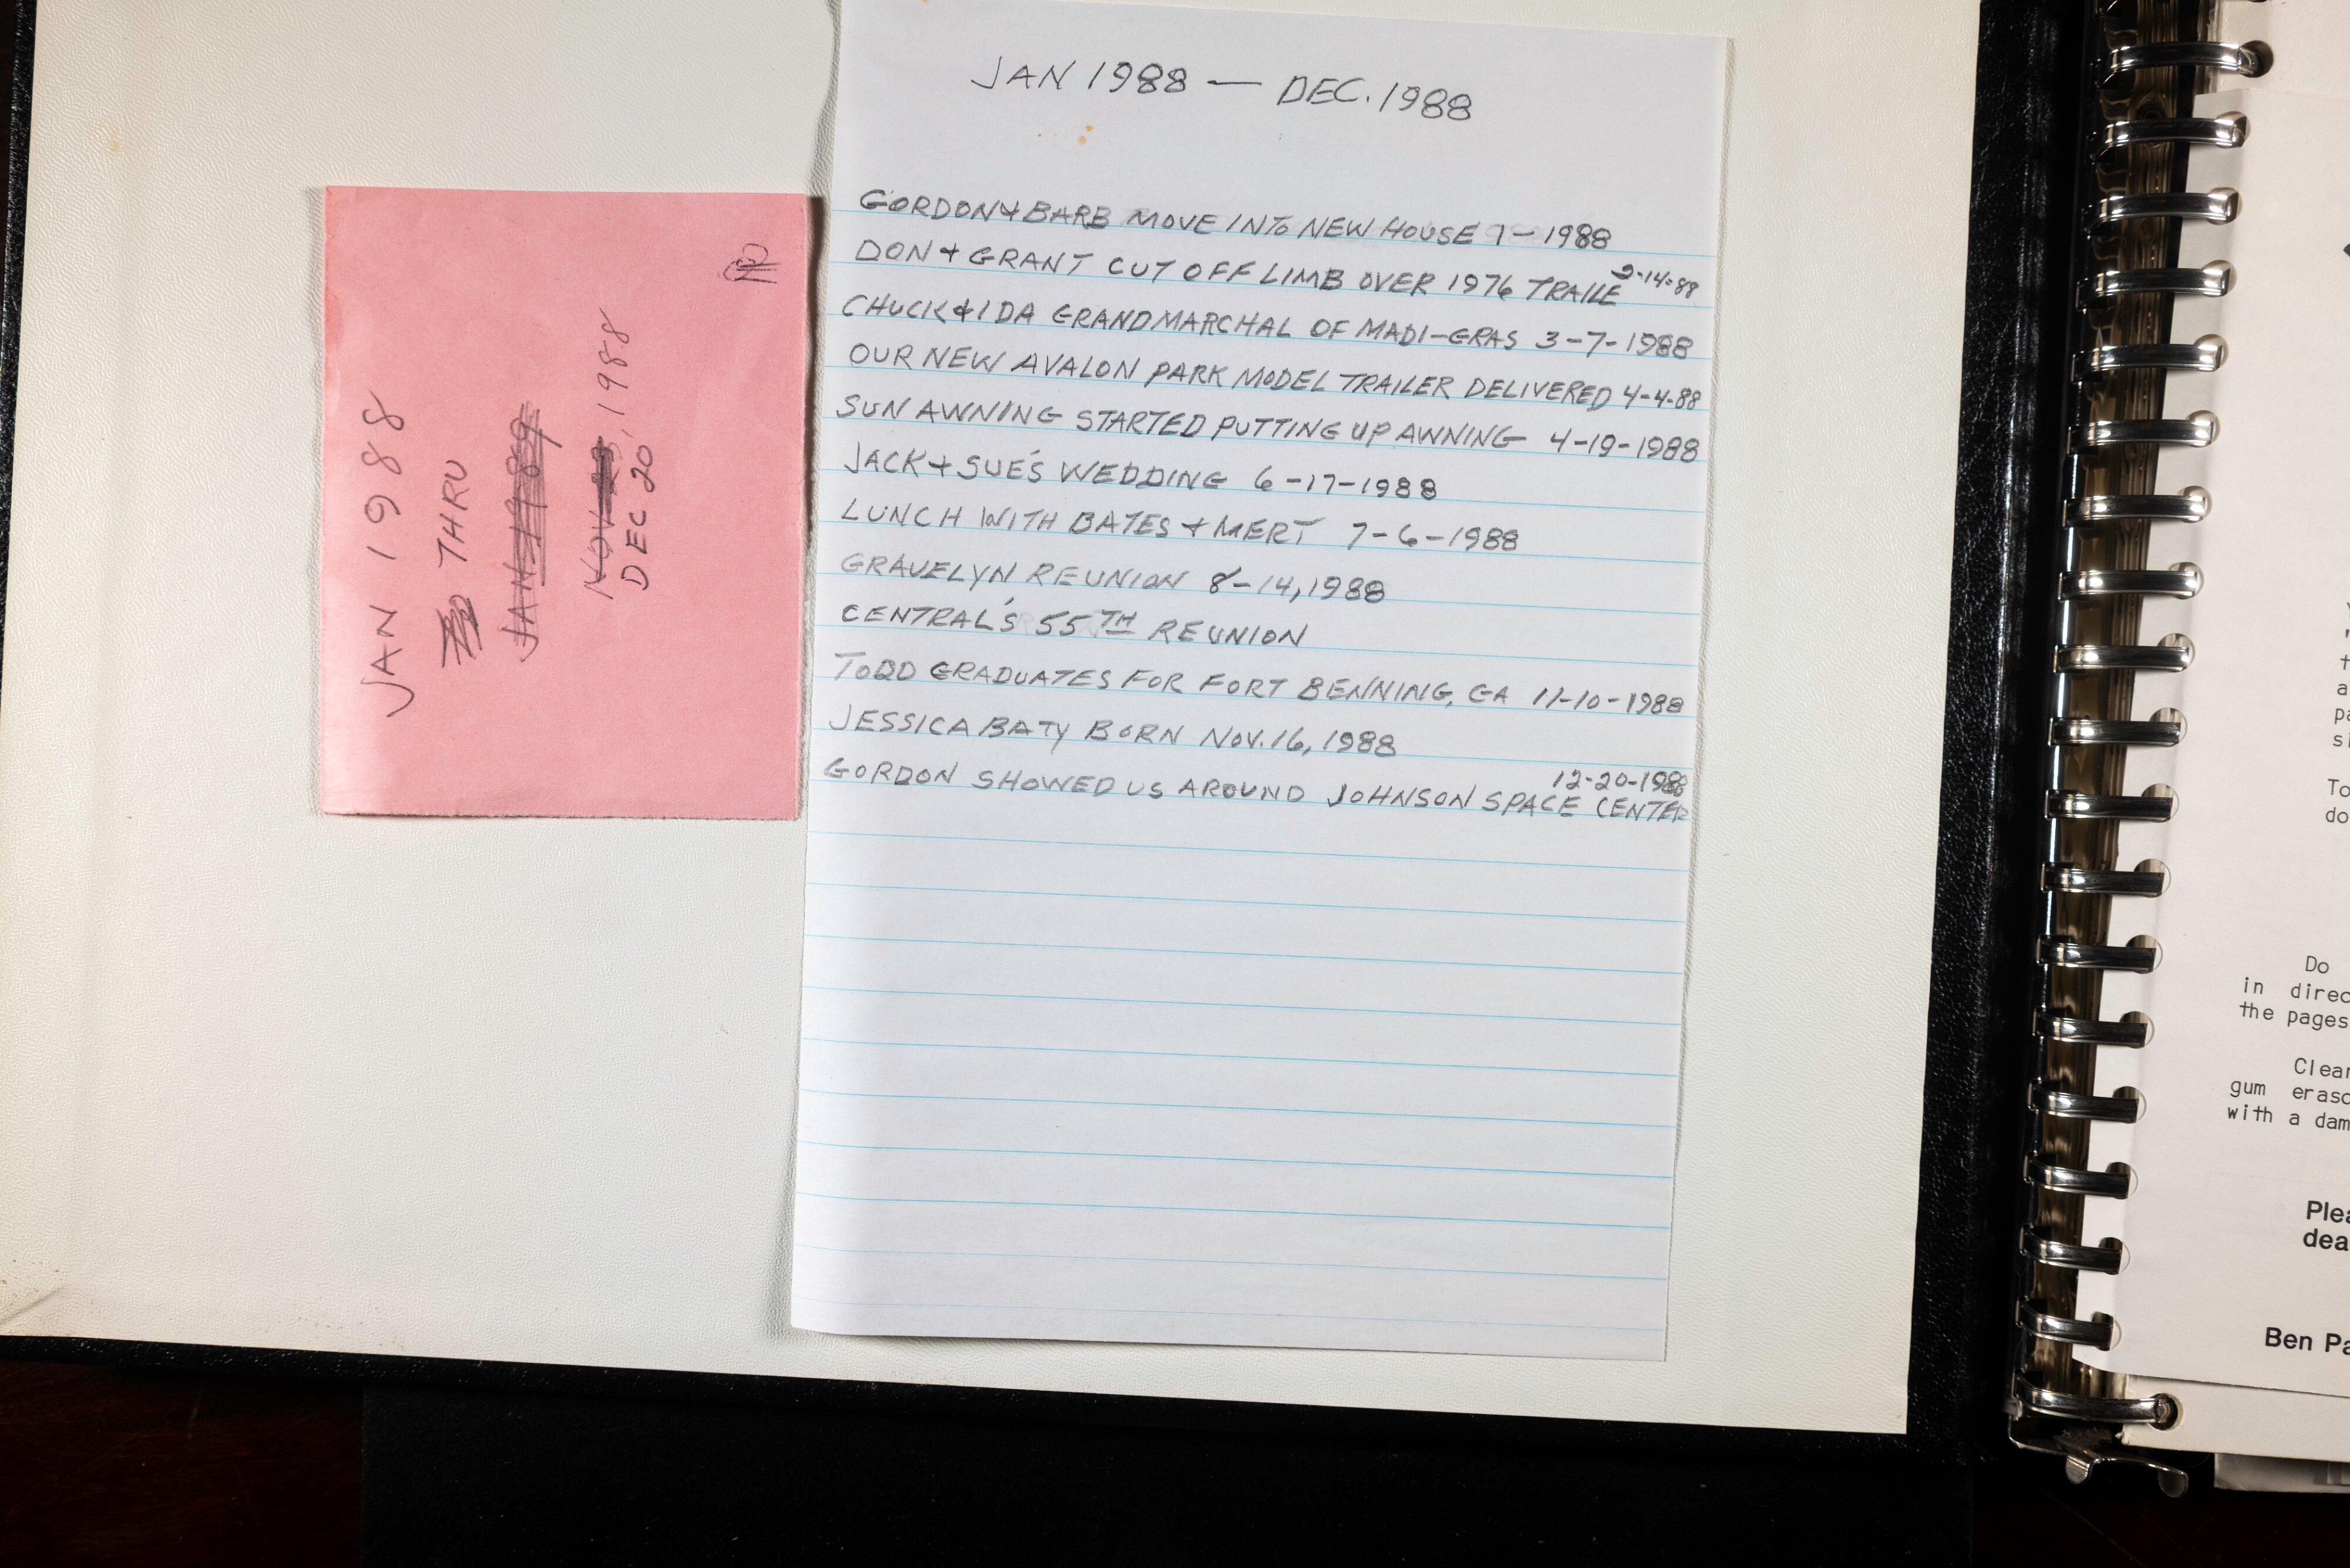 JAN 1988
THRU
JAN 1989
NOV , 1988
DEC 20
JAN 1988 — DEC. 1988
GORDON & BARB MOVE INTO NEW HOUSE 1-1988
DON + GRANT CUT OFF LIMB OVER 1976 TRAILE 2-14-88
CHUCK & IDA GRANDMARCHAL OF MADI-GRAS 3-7-1988
OUR NEW AVALON PARK MODEL TRAILER DELIVERED 4-4-88
SUN AWNING STARTED PUTTING UP AWNING 4-19-1988
JACK + SUE'S WEDDING 6-17-1988
LUNCH WITH BATES + MERT 7-6-1988
GRAVELYN REUNION 8-14,1988
CENTRAL'S 55TH REUNION
TODD GRADUATES FOR FORT BENNING, GA 11-10-1988
JESSICA BATY BORN NOV. 16, 1988
GORDON SHOWED US AROUND JOHNSON SPACE CENTER 12-20-1988
To
do
Do
in direc
the pages
Clear
gum erase
with a dam
Plea
dea
Ben Pa